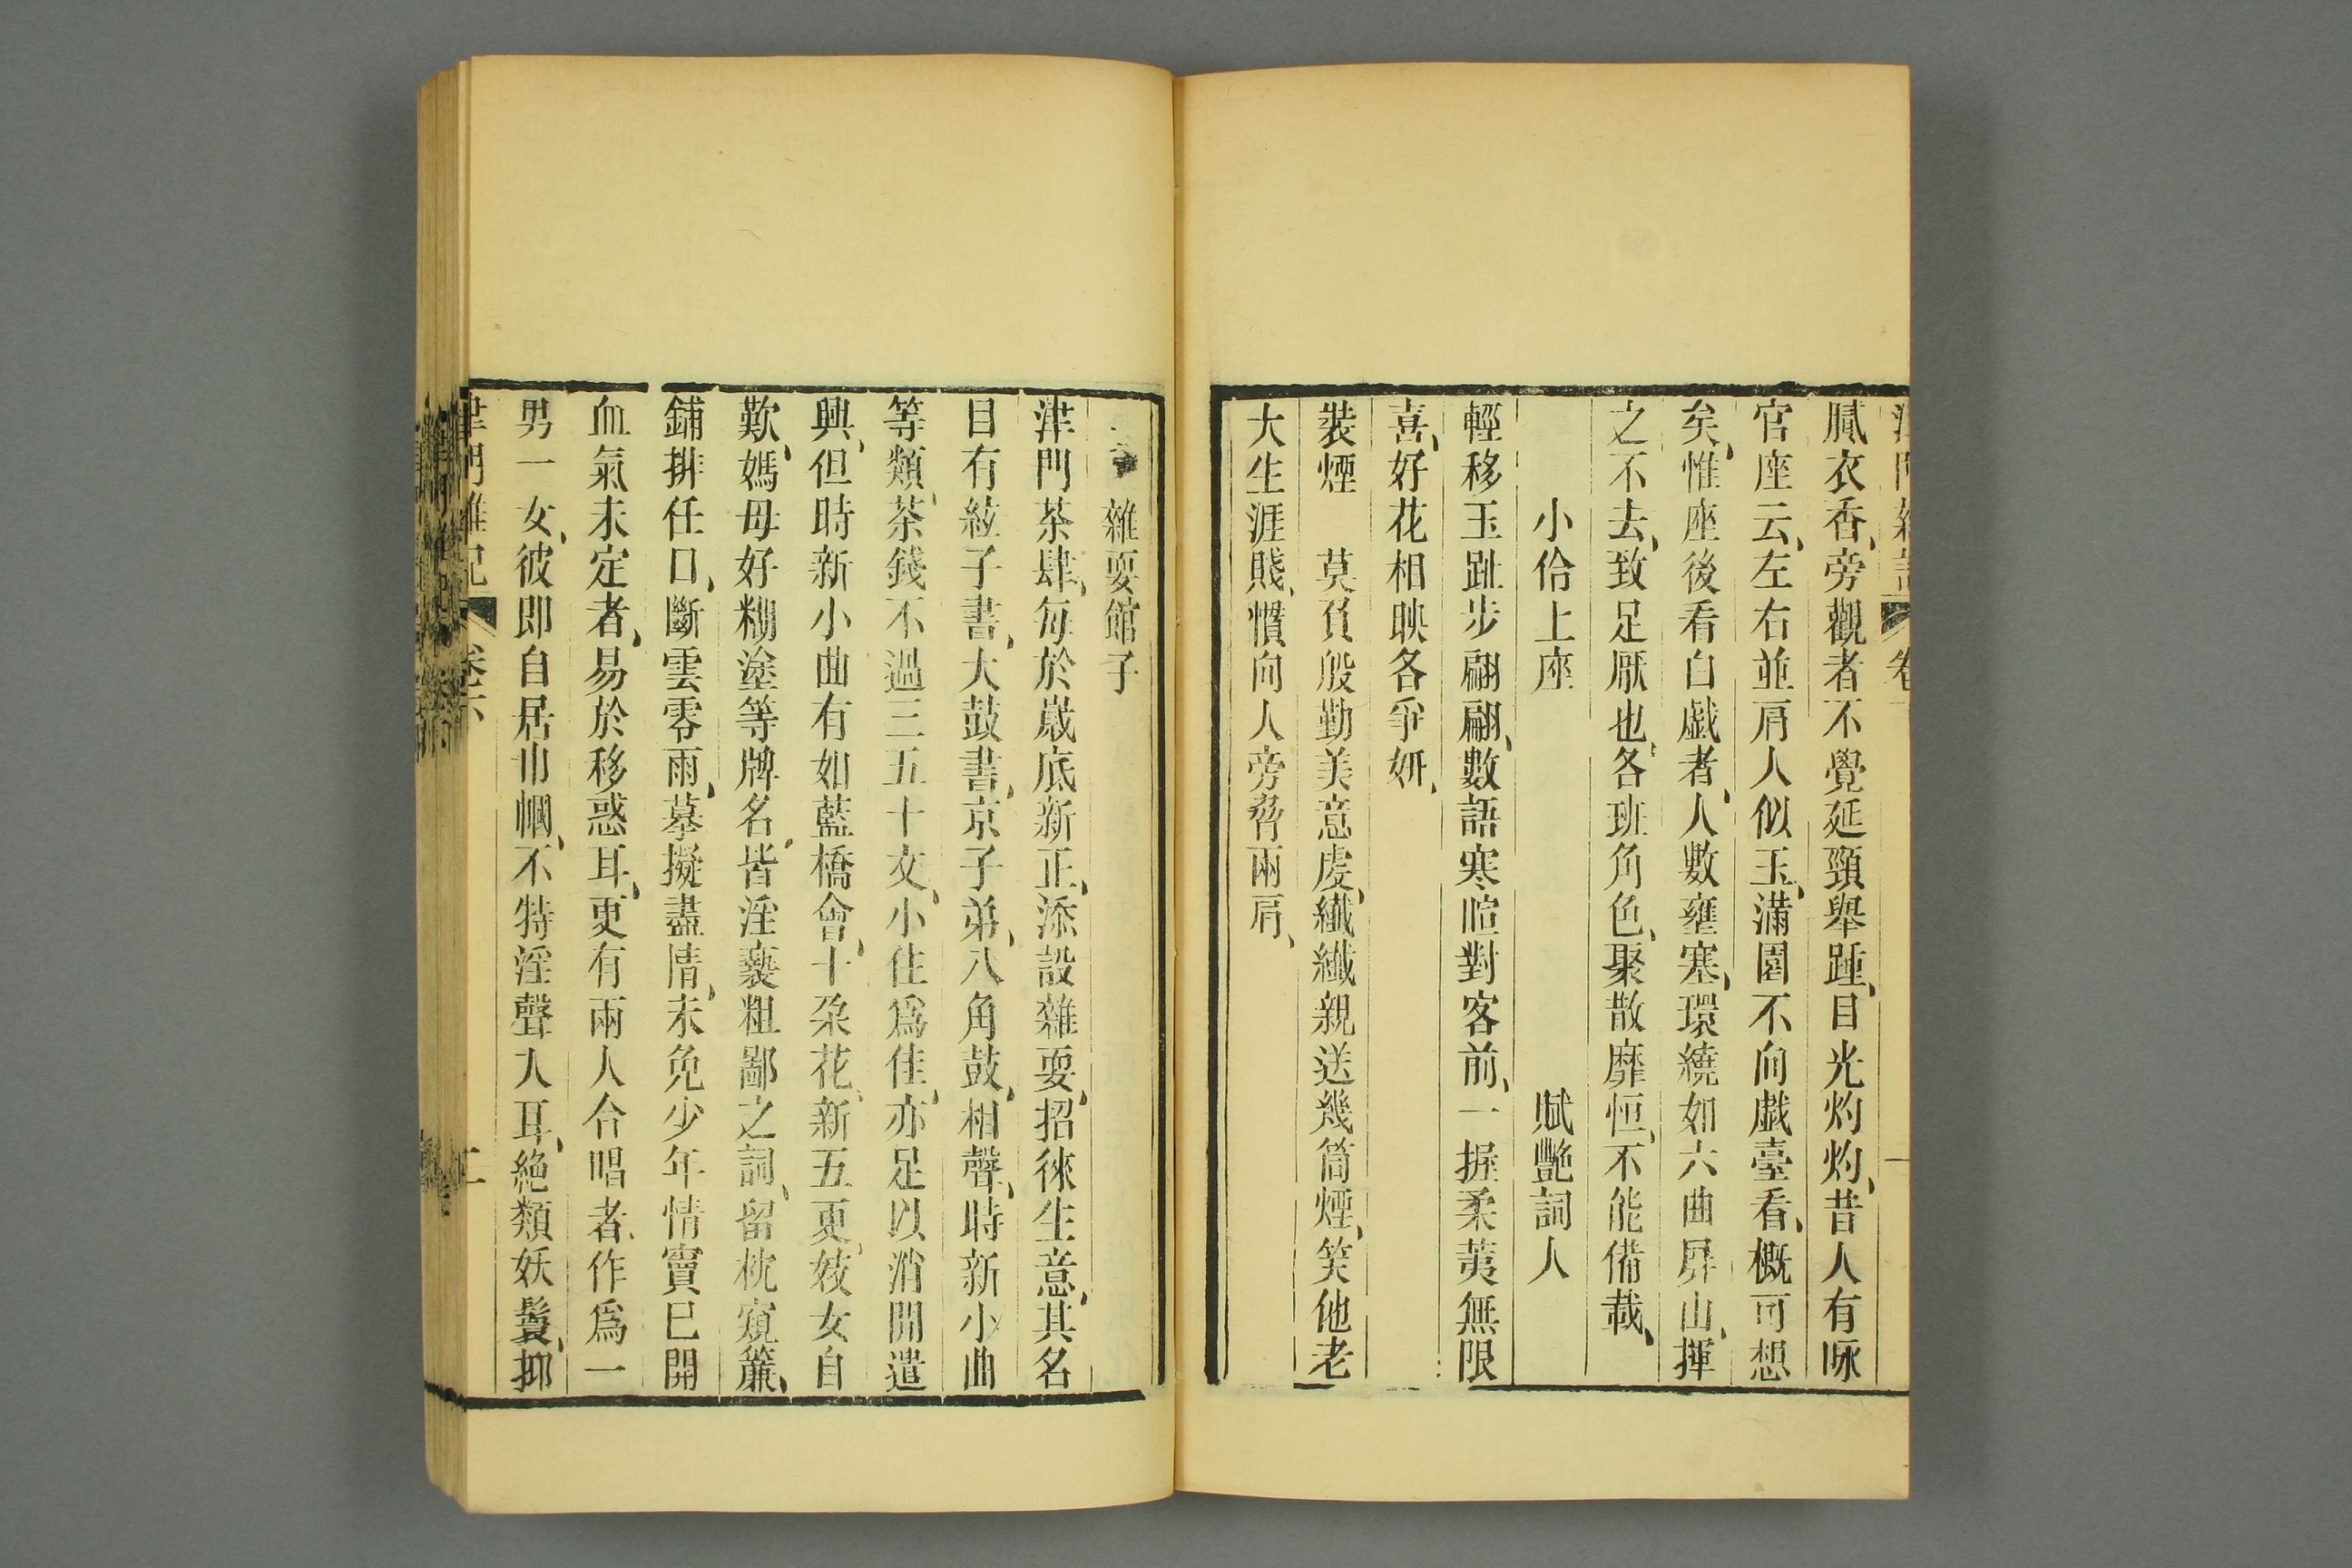 膩衣香、旁觀者不覺延頸舉踵、目光灼灼、昔人有咏
官座云、左右並肩人似玉、滿園不向戲臺看、概可想
矣、惟座後看白戲者、人數壅塞、環繞如六曲屏山、揮
之不去、致足厭也、各班角色、聚散靡恒、不能備載、
小佮上座 賦艷詞人
輕移玉趾步翩翩、數語寒暄對客前、一握柔荑無限
喜、好花相映各爭妍、
裝煙 莫負殷勤美意虔、纖纖親送幾筒煙、笑他老
大生涯賤、慣向人旁脅兩肩、
雜耍館子
津門茶肆、每於歲底新正、添設雜耍、招徠生意、其名
目有絃子書、大鼓書、京子弟、八角鼓、相聲、時新小曲
等類、茶錢不過三五十文、小住爲佳、亦足以消閒遣
興、但時新小曲有如藍橋會、十朶花、新五更、妓女自
歎、媽母好糊塗等牌名、皆淫褻粗鄙之詞、留枕窺簾、
鋪排任口、斷雲零雨、摹擬盡情、未免少年情竇已開
血氣未定者、易於移惑耳、更有兩人合唱者、作爲一
男一女、彼即自居巾幗、不特淫聲入耳、絶類妖鬟、抑
津門雜記 卷下 二